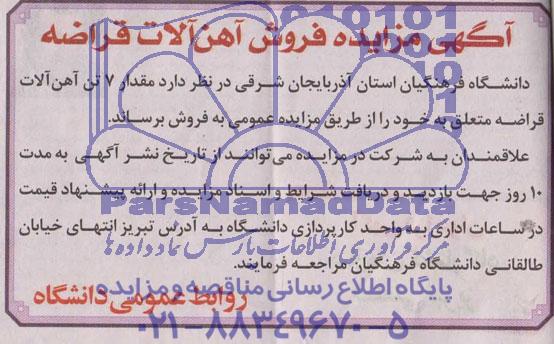 آگهی مزایده فروش آهن‌آلات قراضه
دانشگاه فرهنگیان استان آذربایجان شرقی در نظر دارد مقدار ۷ تن آهن‌آلات
قراضه متعلق به خود را از طریق مزایده عمومی به فروش برساند.
علاقمندان به شرکت در مزایده می‌توانند از تاریخ نشر آگهی به مدت
۱۰ روز جهت بازدید و دریافت شرایط و اسناد مزایده و ارائه پیشنهاد قیمت
ParsNamadData
در ساعات اداری به واحد کارپردازی دانشگاه به آدرس تبریز انتهای خیابان
مرکز فرآوری اطلاعات پارس نماد داده‌ها
طالقانی دانشگاه فرهنگیان مراجعه فرمایند.
پایگاه اطلاع رسانی مناقصه و مزایده
روابط عمومی دانشگاه
۰۲۱-۸۸۳۴۹۶۷۰-۵